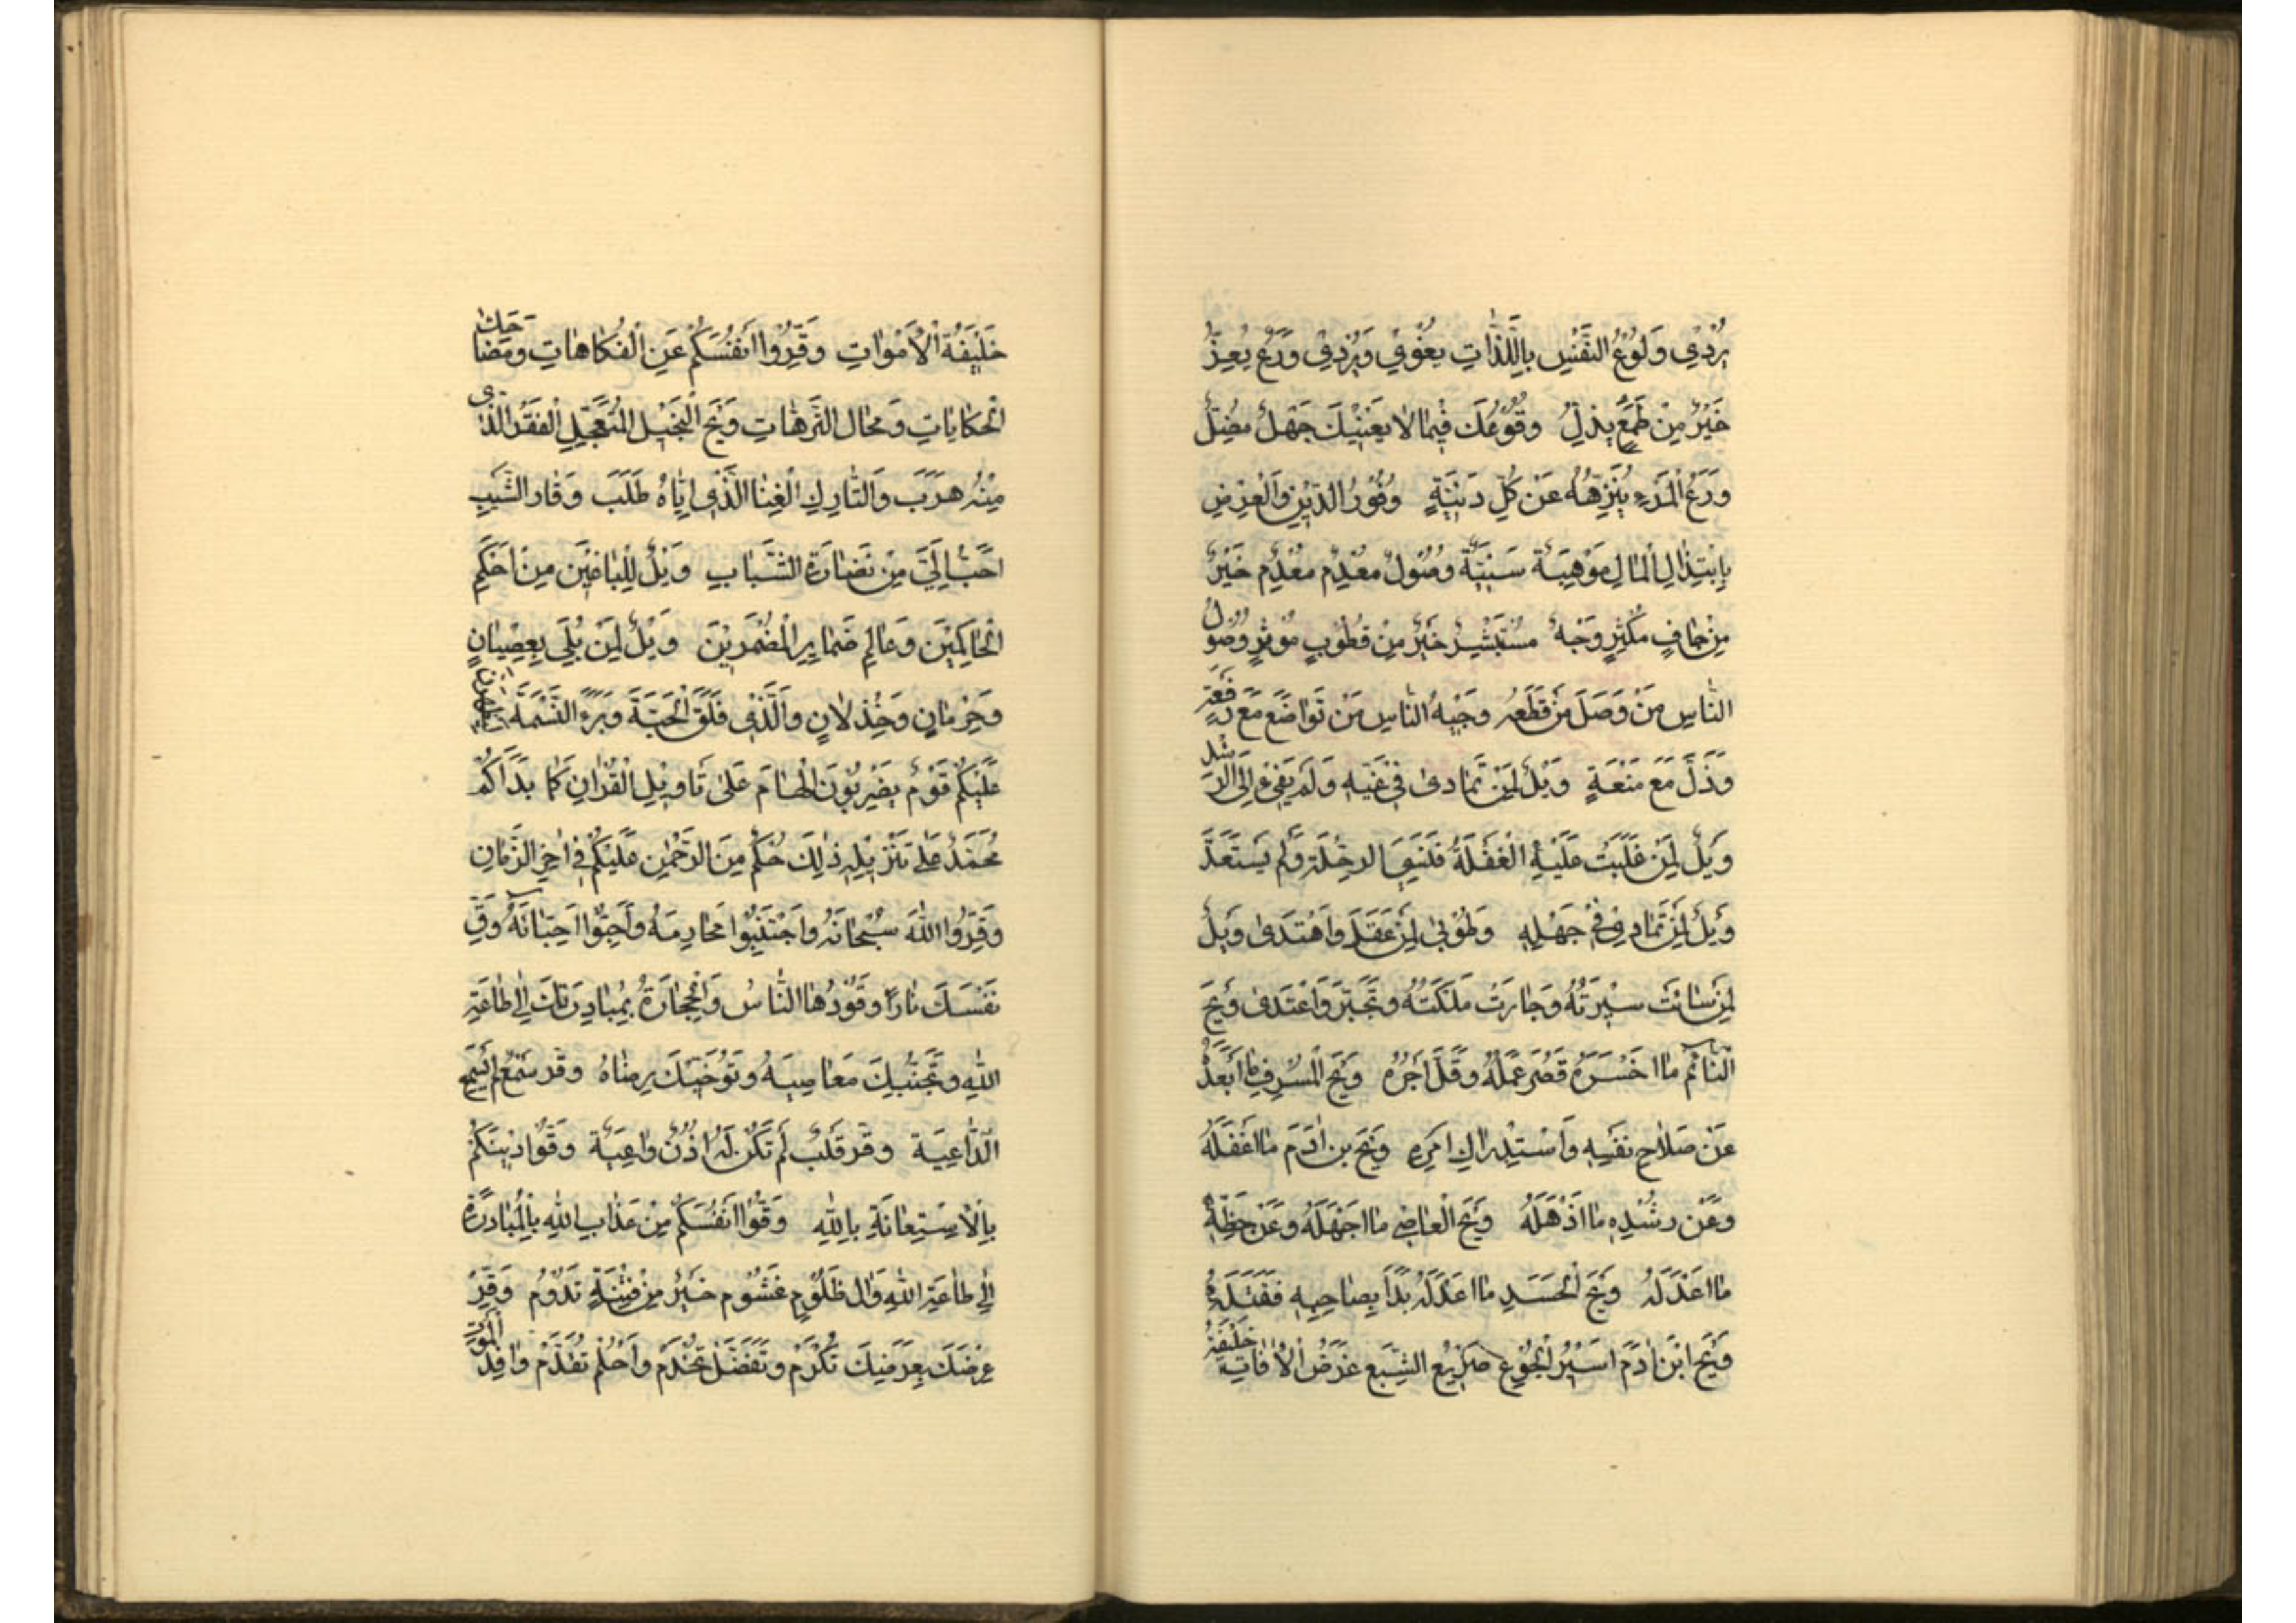 يُرْدِي وَلُوْعُ النَّفْسِ بِاللَّذَّاتِ يُغْوِي وَيُرْدِي وَرَعٌ يُعِزُّ
خَيْرٌ مِنْ طَمَعٍ يُذِلُّ وُقُوْعُكَ فِيْمَا لَا يَعْنِيْكَ جَهْلٌ مُضِلٌّ
وَرَعُ الْمَرْءِ يُنَزِّهُهُ عَنْ كُلِّ دَنِيَّةٍ وُفُوْرُ الدِّيْنِ وَالْعِرْضِ
بِابْتِذَالِ الْمَالِ مَوْهِبَةٌ سَنِيَّةٌ وُصُوْلٌ مُعْدِمٌ مُعْدِمٌ خَيْرٌ
مِنْ جَافٍ مُكْثِرٍ وَجْهٌ مُسْتَبْشِرٌ خَيْرٌ مِنْ قُطُوْبٍ مُوْثِرٍ وُصُوْلُ
النَّاسِ مَنْ وَصَلَ مَنْ قَطَعَهُ وَجِيْهُ النَّاسِ مَنْ تَوَاضَعَ مَعَ رَفْعَةٍ
وَذَلَّ مَعَ مَنْعَةٍ وَيْلٌ لِمَنْ تَمَادَى فِي غَيِّهِ وَلَمْ يَفِئْ إِلَى الرَّشَدِ
وَيْلٌ لِمَنْ غَلَبَتْ عَلَيْهِ الْغَفْلَةُ فَنَسِيَ الرِّحْلَةَ وَلَمْ يَسْتَعِدَّ
وَيْلٌ لِمَنْ تَمَادَى فِي جَهْلِهِ وَطُوْبَى لِمَنْ عَقَلَ وَاهْتَدَى وَيْلٌ
لِمَنْ سَائَتْ سِيْرَتُهُ وَجَارَتْ مَلَكَتُهُ وَتَجَبَّرَ وَاعْتَدَى وَيْحَ
النَّائِمِ مَا اخْسَرَهُ قَصُرَ عَمَلُهُ وَقَلَّ أَجْرُهُ وَيْحَ الْمُسْرِفِ مَا أَبْعَدَهُ
عَنْ صَلَاحِ نَفْسِهِ وَاسْتِدْرَاكِ امْرِهِ وَيْحَ بن اٰدَمَ مَا اغْفَلَهُ
وَعَنْ رُشْدِهِ مَا اذْهَلَهُ وَيْحَ الْعَاصِي مَا اجْهَلَهُ وَعَنْ حَظِّهِ
مَا اعْدَلَهُ وَيْحَ الْحَسَدِ مَا اعْدَلَهُ بَدَأَ بِصَاحِبِهِ فَقَتَلَهُ
وَيْحَ ابْنَ اٰدَمَ اسِيْرُ الْجُوْعِ صَرِيْعُ الشِّبَعِ غَرَضُ الْاٰفَاتِ خَلِيْفَةُ
خَلِيْفَةُ الْأَمْوَاتِ وَقِّرُوا انْفُسَكُمْ عَنِ الْفُكَاهَاتِ وَمَضَاحِكِ
الْحِكَايَاتِ وَمَحَال التُّرَّهَاتِ وَيْحَ الْبَخِيْلِ الْمُتَعَجِّلِ الْفَقْرَ الَّذِي
مِنْهُ هَرَبَ وَالتَّارِكِ الْغِنَا الَّذِي اِيَّاهُ طَلَبَ وَقَار الشَّيْبِ
احَبُّ إِلَيَّ مِنْ نَضَارَةِ الشَّبَابِ وَيْلٌ لِلْبَاغِيْنَ مِنْ احْكَمِ
الْحَاكِمِيْنَ وَعَالِمِ ضَمَايِرِ الْمُضْمِرِيْنَ وَيْلٌ لِمَنْ بُلِيَ بِعِصْيَانٍ
وَحِرْمَانٍ وَخِذْلَانٍ وَالَّذِي فَلَقَ الْحَبَّةَ وَبَرَءَ النَّسَمَةَ
عَلَيْكُمْ قَوْمٌ يَضْرِبُوْنَ الْهَامَ عَلَى تَاوِيْلِ الْقُرْاٰنِ كَمَا بَدَأَكُمْ
مُحَمَّدٌ عَلَى تَنْزِيْلِهِ ذٰلِكَ حُكْمٌ مِنَ الرَّحْمٰنِ عَلَيْكُمْ فِي اٰخِرِ الزَّمَانِ
وَقِّرُوا اللّٰهَ سُبْحَانَهُ وَاجْتَنِبُوا مَحَارِمَهُ وَأَحِبُّوا احِبَّائَهُ وَقِ
نَفْسَكَ نَارًا وَقُوْدُهَا النَّاسُ وَالْحِجَارَةُ بِمُبَادِرَتِكَ إِلَى طَاعَةِ
اللّٰهِ وَتَجَنُّبِكَ مَعَاصِيَهُ وَتَوَخِّيْكَ رِضَاهُ وَقَدْ سَمْعٌ لَمْ يَسْمَعْ
الدَّاعِيَةَ وَقَرَ قَلْبٌ لَمْ تَكُنْ لَهُ اذُنٌ وَاعِيَةٌ وَقُوْا دِيْنَكُمْ
بِالْاِسْتِعَانَةِ بِاللّٰهِ وَقُوْا انْفُسَكُمْ مِنْ عَذَابِ اللّٰهِ بِالْمُبَادَرَةِ
إِلَى طَاعَةِ اللّٰهِ وَالٍ ظَلُوْمٍ غَشُوْمٍ خَيْرٌ مِنْ فِتْنَةٍ تَدُوْمُ وَقِّرْ
عِرْضَكَ بِعَرَضِكَ تُكْرَمْ وَتَفَضَّلْ تُخْدَمْ وَاحْلُمْ تُقَدَّمْ وَافِدُ الْمَوْتِ